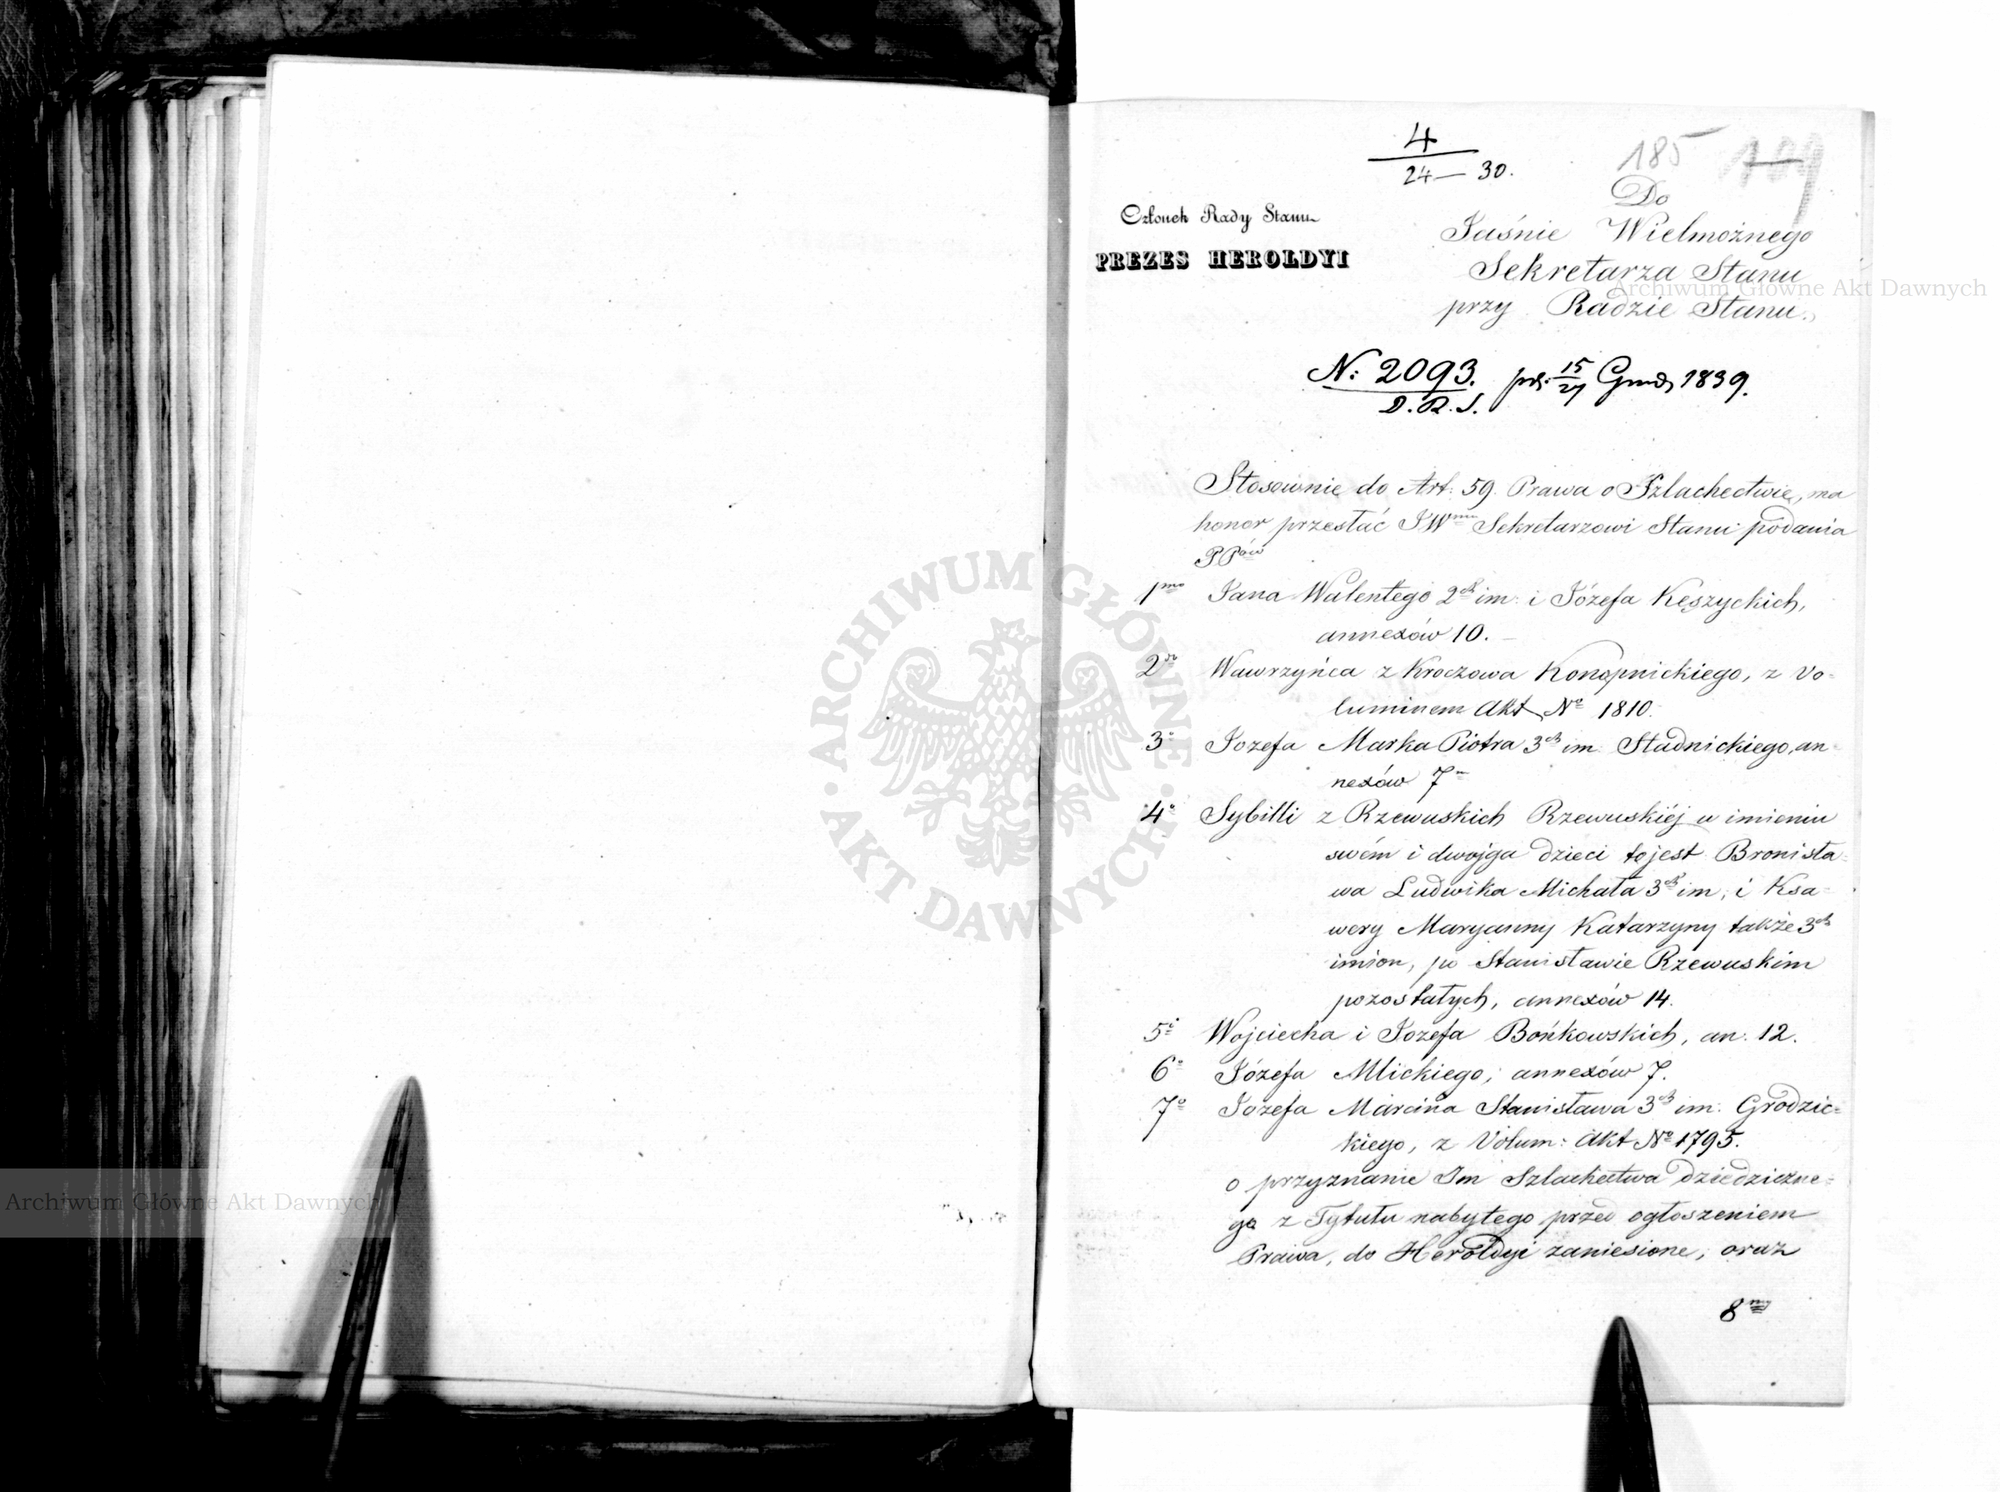 4
24 — 30.
185 109
Członek Rady Stanu
PREZES HEROLDYI
Do
Jaśnie Wielmożnego
Sekretarza Stanu
przy Radzie Stanu.
N: 2093. 15/27 Grud 1839.
D.R.S.
Stosownie do Art: 59. Prawa o Szlachectwie, ma
honor przesłać JWmu Sekretarzowi Stanu podania
PPów
1mo Jana Walentego 2ch im: i Józefa Kęszyckich,
annexów 10. —
2do Wawrzyńca z Kroczowa Konopnickiego, z Vo-
luminem Akt No 1810.
3o Jozefa Marka Piotra 3ch im: Stadnickiego, an-
nexów 7
4o Sybilli z Rzewuskich Rzewuskiéj w imieniu
swém i dwojga dzieci to jest Bronisła-
wa Ludwika Michała 3ch im; i Ksa-
wery Maryanny Katarzyny także 3ch
imion, po Stanisławie Rzewuskim
pozostałych, annexów 14.
5o Wojciecha i Jozefa Bońkowskich, an: 12.
6o Józefa Mlickiego, annexów 7.
7o Jozefa Marcina Stanisława 3ch im: Grodzic-
kiego, z Volum: Akt No 1795.
o przyznanie Im Szlachectwa dziedziczne-
go z Tytułu nabytego przed ogłoszeniem
Prawa, do Heroldyi zaniesione, oraz
8vo
ARCHIWUM GŁÓWNE AKT DAWNYCH
Archiwum Główne Akt Dawnych
Archiwum Główne Akt Dawnych